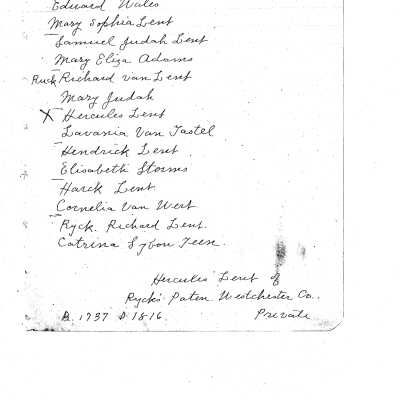 Edward Wales
Mary Sophia Lent
Samuel Judah Lent
Mary Eliza Adams
Ruck Richard van Lent
Mary Judah
X Hercules Lent
Lavania Van Tastel
Hendrick Lent
Elisabeth Storms
Harck Lent
Cornelia Van Wert
Ryck. Richard Lent.
Catrina Sybou Teen.
Hercules Lent of
Ryck's Paten Westchester Co.
B. 1737 D 1816. Private